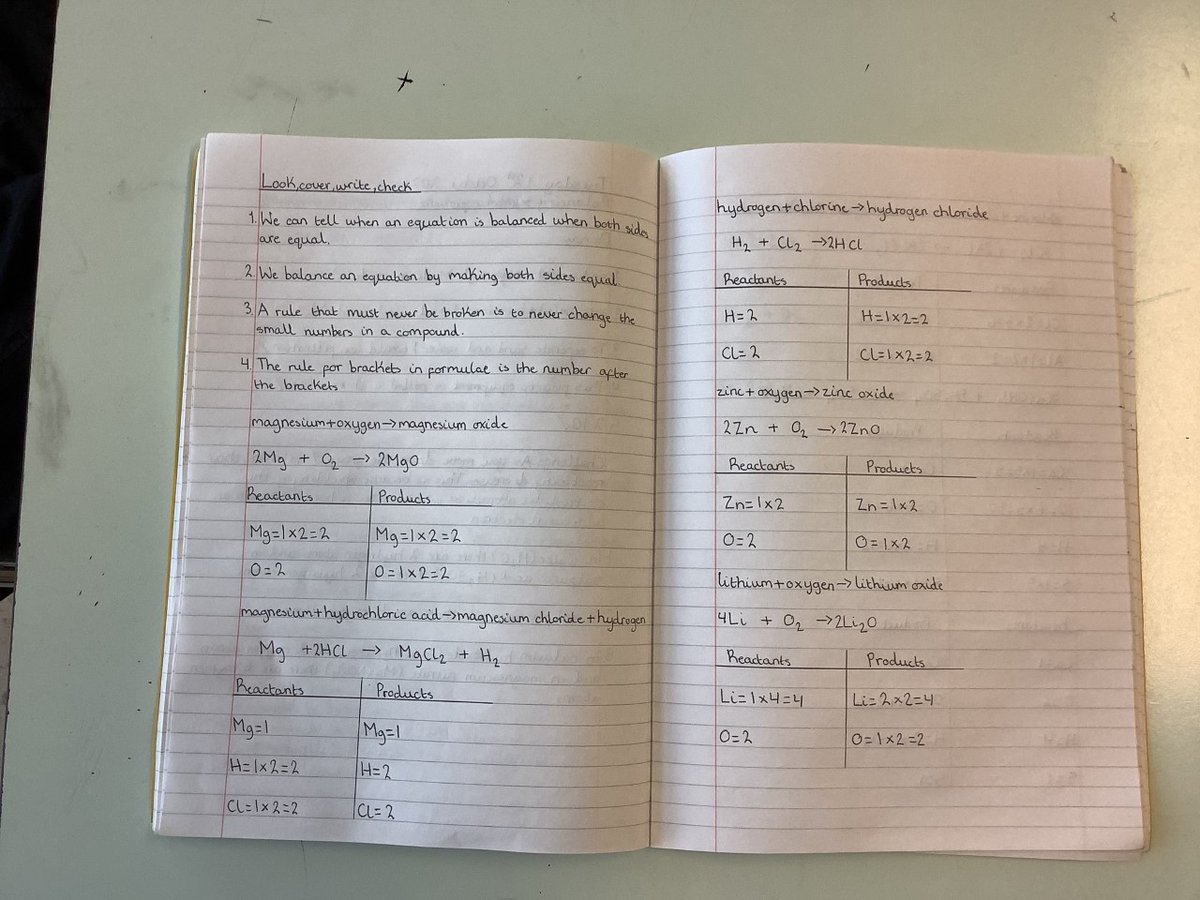 Look,cover,write,check
1. We can tell when an equation is balanced when both sides
are equal.
2. We balance an equation by making both sides equal.
3. A rule that must never be broken is to never change the
small numbers in a compound.
4. The rule for brackets in formulae is the number after
the brackets
magnesium+oxygen→magnesium oxide
2Mg + O₂ → 2MgO
Reactants Products
Mg=1×2=2 Mg=1×2=2
O=2 O=1×2=2
magnesium+hydrochloric acid→magnesium chloride+hydrogen
Mg +2HCl → MgCl₂ + H₂
Reactants Products
Mg=1 Mg=1
H=1×2=2 H=2
Cl=1×2=2 Cl=2
hydrogen+chlorine→hydrogen chloride
H₂ + Cl₂ →2HCl
Reactants Products
H=2 H=1×2=2
Cl=2 Cl=1×2=2
zinc+oxygen→zinc oxide
2Zn + O₂ →2ZnO
Reactants Products
Zn=1×2 Zn=1×2
O=2 O=1×2
lithium+oxygen→lithium oxide
4Li + O₂ →2Li₂O
Reactants Products
Li=1×4=4 Li=2×2=4
O=2 O=1×2=2